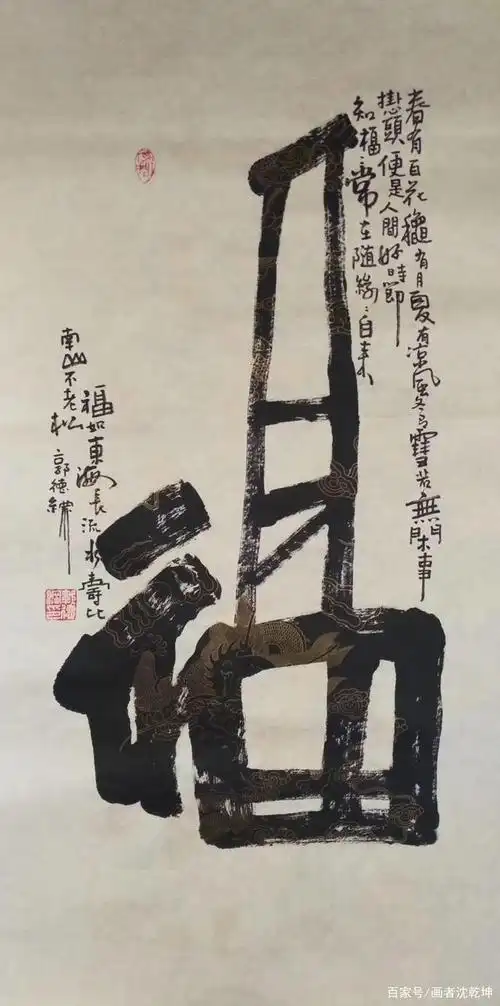 春有百花穐有月夏有凉風冬有雪若無閑事
掛頭便是人間好時節
知福〻常在隨緣〻自来
福
福如東海長流水壽比
南山不老松 郭德綱
百家号/画者沈乾坤